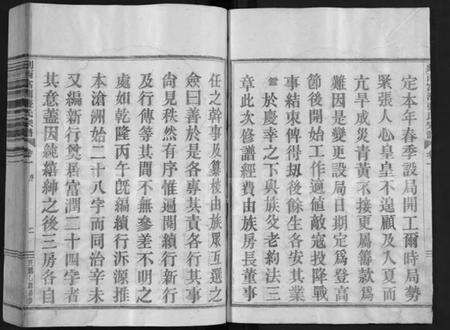 定本年春季設局開工爾時局勢
緊張人心皇皇不遑顧及入夏而
亢旱成災青黃不接更屬籌款爲
難因是變更設局日期定爲登高
節後開始工作適値敵寇投降戰
事結束俾得刼後餘生各安其業
當於慶幸之下與族父老約法三
章此次修譜經費由族房長董事
任之幹事及纂稜由族眾互選之
僉曰善於是各專其責各行其事
尙見秩然有序惟過閱續行新行
及行傳等其間不無參差不明之
處如乾隆丙午旣編續行泝源推
本滄洲始二十八字而同治辛未
又編新行奠梧富潤二十四字者
其意蓋因純縉紳之後三房各自